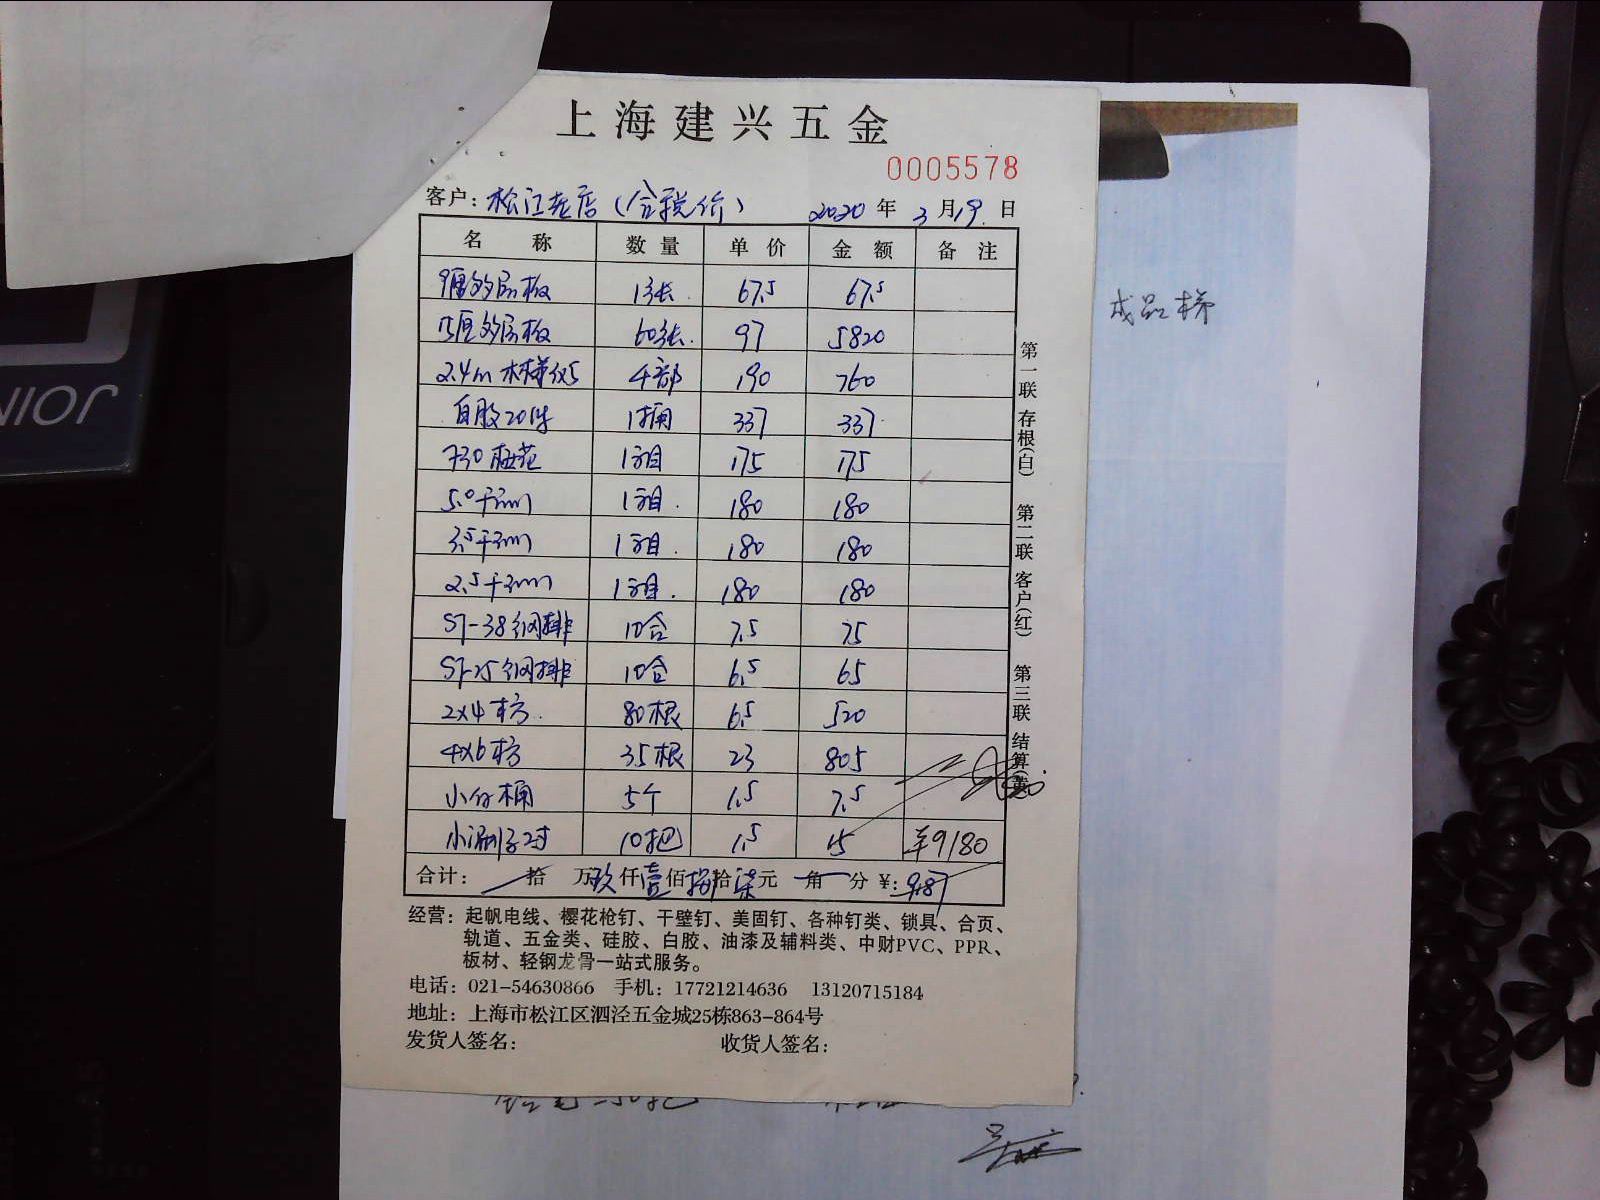 上海建兴五金
0005578
客户: 松江老店（含税价） 2020 年 3 月 19 日
名 称 数 量 单 价 金 额 备 注
9厘多层板 1张 67.5 67.5
15厘多层板 60张 97 5820
2.4m 木梯 4部 190 760
白胶20 1桶 337 337
730 梅花 1箱 175 175
5.0干 1箱 180 180
3.5干 1箱 180 180
2.5干 1箱 180 180
ST-38 钢排 10合 7.5 75
ST-25 钢排 10合 6.5 65
2×4 木方 80根 6.5 520
4×6 木方 35根 23 805
小白桶 5个 1.5 7.5
小涮子2寸 10把 1.5 15 ¥9180
合计: 拾 万 玖 仟 壹 佰 捌 拾 柒 元 角 分 ¥: 9187
第一联 存根(白) 第二联 客户(红) 第三联 结算(黄)
经营: 起帆电线、樱花枪钉、干壁钉、美固钉、各种钉类、锁具、合页、
轨道、五金类、硅胶、白胶、油漆及辅料类、中财PVC、PPR、
板材、轻钢龙骨一站式服务。
电话: 021-54630866 手机: 17721214636 13120715184
地址: 上海市松江区泗泾五金城25栋863-864号
发货人签名: 收货人签名:
成品梯
JOIN